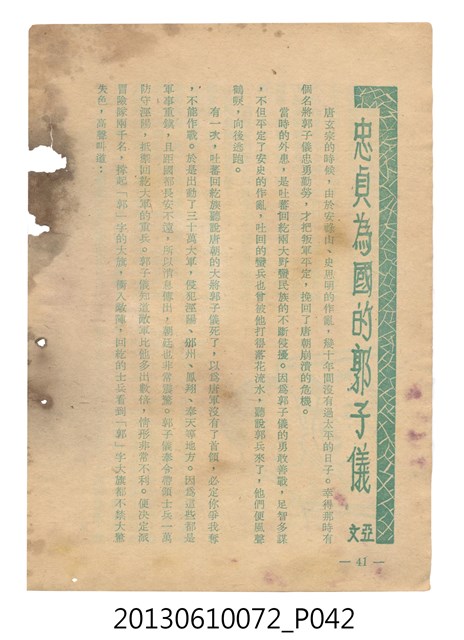 忠貞為國的郭子儀
亞文
— 41 —
唐玄宗的時候，由於安祿山、史思明的作亂，幾十年間沒有過太平的日子。幸得那時有
個名將郭子儀忠勇勤勞，才把叛軍平定，挽回了唐朝崩潰的危機。
當時的外患，是吐蕃回紇兩大野蠻民族的不斷侵擾。因為郭子儀的勇敢善戰，足智多謀
，不但平定了安史的作亂，吐回的蠻兵也曾被他打得落花流水，聽說郭兵來了，他們便風聲
鶴唳，向後逃跑。
有一次，吐蕃回紇族聽說唐朝的大將郭子儀死了，以為唐軍沒有了首領，必定你爭我奪
，不能作戰。於是出動了三十萬大軍，侵犯涇陽、邠州、鳳翔、奉天等地方。因為這些都是
軍事重鎮，且距國都長安不遠，所以消息傳出，朝廷也非常震驚。郭子儀奉令帶領士兵一萬
防守涇陽，抵禦回紇大軍的重兵。郭子儀知道敵軍比他多出數倍，情形非常不利。便決定派
冒險隊兩千名，掮起「郭」字的大旗，衝入敵陣，回紇的士兵看到「郭」字大旗都不禁大驚
失色，高聲叫道：
20130610072_P042